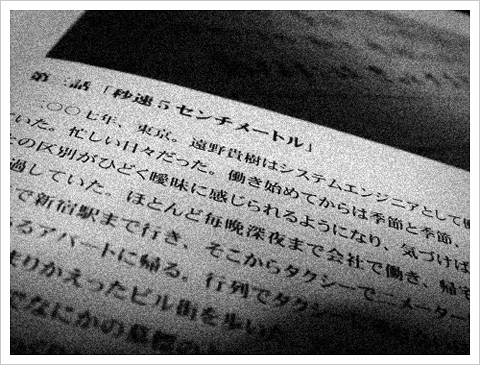 第三話「秒速５センチメートル」
二〇〇七年、東京。遠野貴樹はシステムエンジニアとして働
いた。忙しい日々だった。働き始めてからは季節と季節、
の区別がひどく曖昧に感じられるようになり、気づけば
過していた。ほとんど毎晩深夜まで会社で働き、帰宅
で新宿駅まで行き、そこからタクシーで二メーター
るアパートに帰る。行列でタクシー
まりかえったビル街を歩いた
でなにかの墓標の